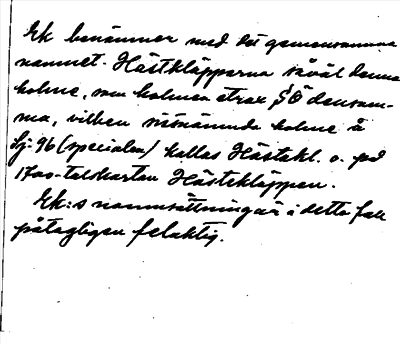 Ek benämner med det gemensamma
namnet Hästkläpparna såväl denna
holme, som holmen strax SÖ densam-
ma, vilken sistnämnda holme å
Sj. 96 (specialen) kallas Hästekl. o. på
1700-talskartan Hästekläppen.
Ek:s namnsättning är i detta fall
påtagligen felaktig.